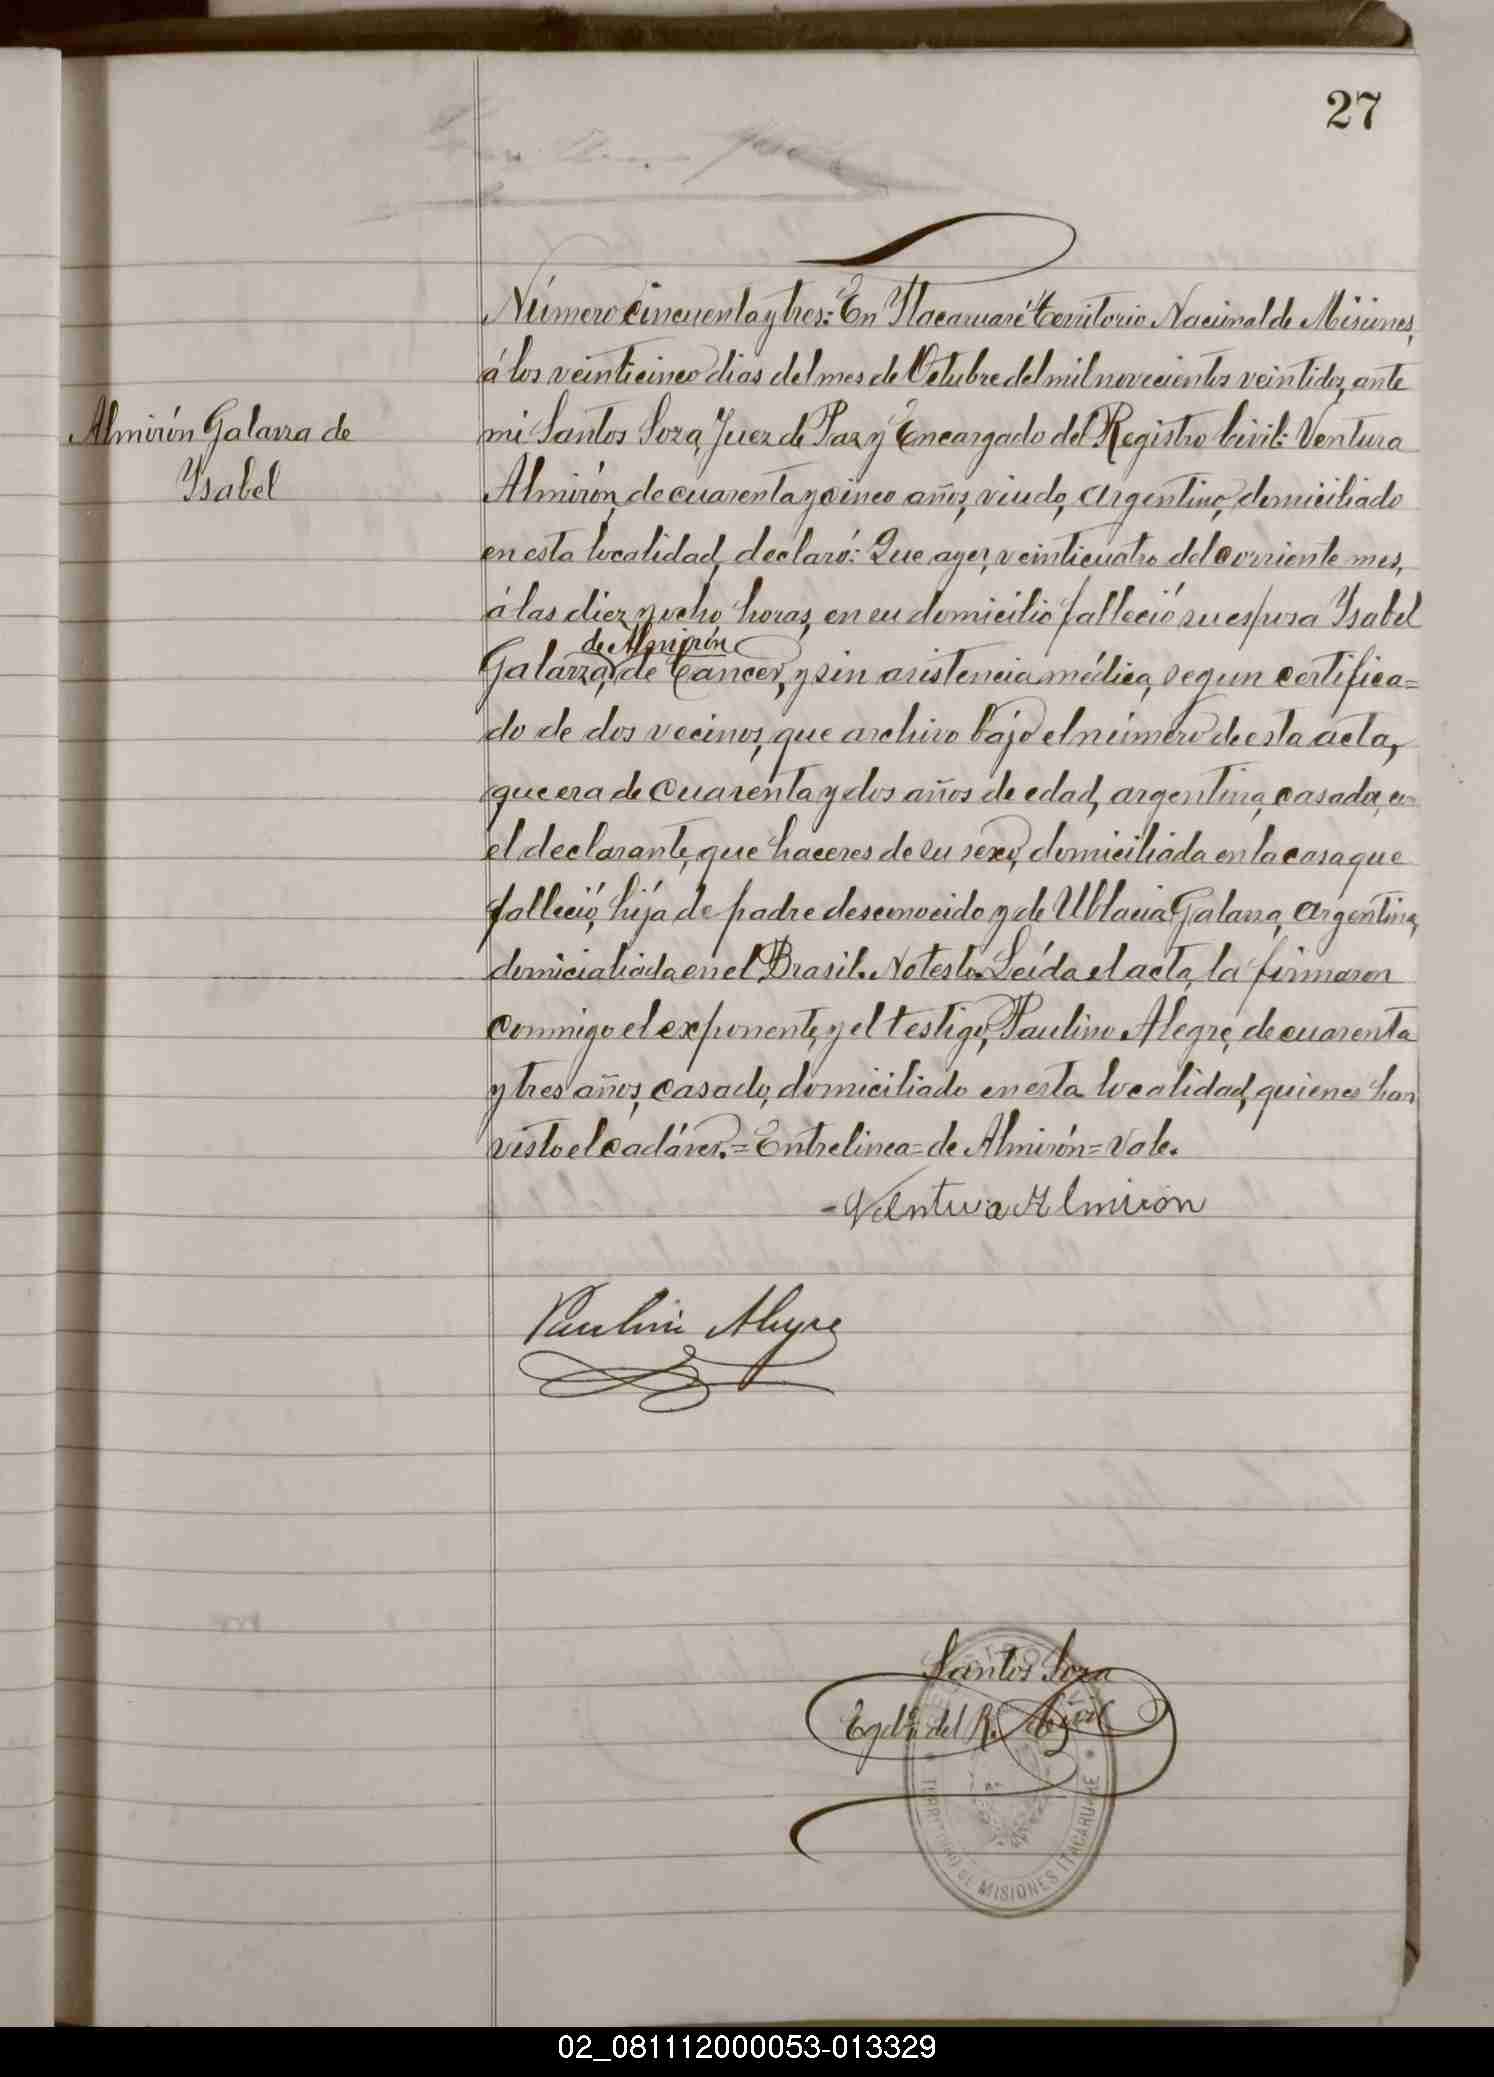 27
Número cincuenta y tres: En "Ytacaruaré" Territorio Nacional de Misiones,
á los veinticinco dias del mes de Octubre del mil novecientos veintidos, ante
Almirón Galarza de
mi Santos Soza, Juez de Paz y Encargado del Registro Civil: Ventura
Ysabel
Almirón, de cuarenta y cinco años, viudo, argentino, domiciliado
en esta localidad, declaró: Que ayer, veinticuatro del corriente mes,
á las diez y ocho horas, en su domicilio falleció su esposa Ysabel
de Almirón
Galarza, de Cancer, y sin asistencia médica, segun certifica=
do de dos vecinos, que archivo bajo el número de esta acta,
que era de cuarenta y dos años de edad, argentina, casada, con
el declarante, que haceres de su sexo, domiciliada en la casa que
falleció, hija de padre desconocido y de Ublacia Galarza, argentina,
domicialiada en el Brasil. No testó. Leída el acta, la firmaron
conmigo el exponente, y el testigo, Paulino Alegre, de cuarenta
y tres años, casado, domiciliado en esta localidad, quienes han
visto el cadáver.=Entrelinea=de Almirón=Vale.
-Ventura Almiron
Paulino Alegre
Santos Soza
Egdo. del R. Civil
TERRITORIO DE MISIONES ITACARUARE
02_081112000053-013329